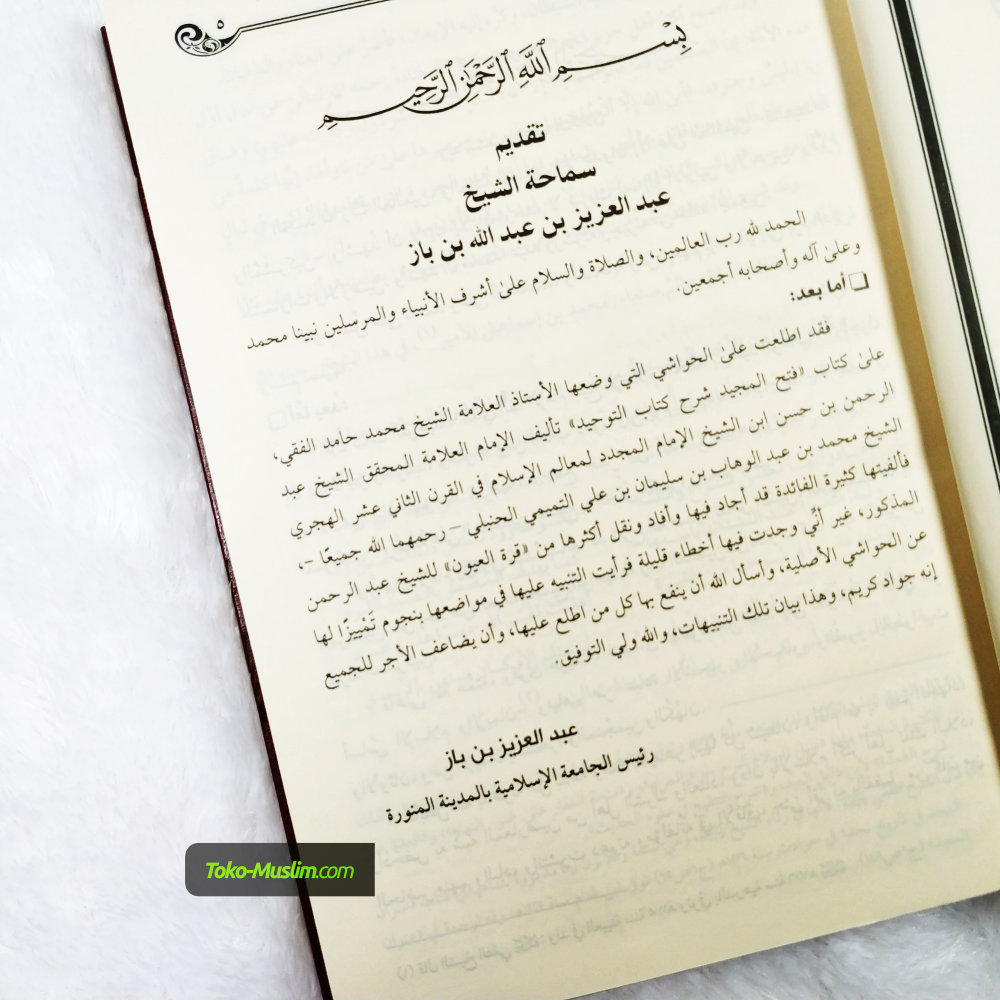 ٥
بِسْمِ ٱللَّهِ ٱلرَّحْمَٰنِ ٱلرَّحِيمِ
تقديم
سماحة الشيخ
عبد العزيز بن عبد الله بن باز
الحمد لله رب العالمين، والصلاة والسلام علىٰ أشرف الأنبياء والمرسلين نبينا محمد
وعلىٰ آله وأصحابه أجمعين.
❑ أما بعد:
فقد اطلعت علىٰ الحواشي التي وضعها الأستاذ العلامة الشيخ محمد حامد الفقي،
علىٰ كتاب «فتح المجيد شرح كتاب التوحيد» تأليف الإمام العلامة المحقق الشيخ عبد
الرحمن بن حسن ابن الشيخ الإمام المجدد لمعالم الإسلام في القرن الثاني عشر الهجري
الشيخ محمد بن عبد الوهاب بن سليمان بن علي التميمي الحنبلي – رحمهما الله جميعًا –،
فألفيتها كثيرة الفائدة قد أجاد فيها وأفاد ونقل أكثرها من «قرة العيون» للشيخ عبد الرحمن
المذكور، غير أنَّي وجدت فيها أخطاء قليلة فرأيت التنبيه عليها في مواضعها بنجوم تَمْييزًا لها
عن الحواشي الأصلية، وأسأل الله أن ينفع بها كل من اطلع عليها، وأن يضاعف الأجر للجميع
إنه جواد كريم، وهذا بيان تلك التنبيهات، والله ولي التوفيق.
عبد العزيز بن باز
رئيس الجامعة الإسلامية بالمدينة المنورة
Toko-Muslim.com